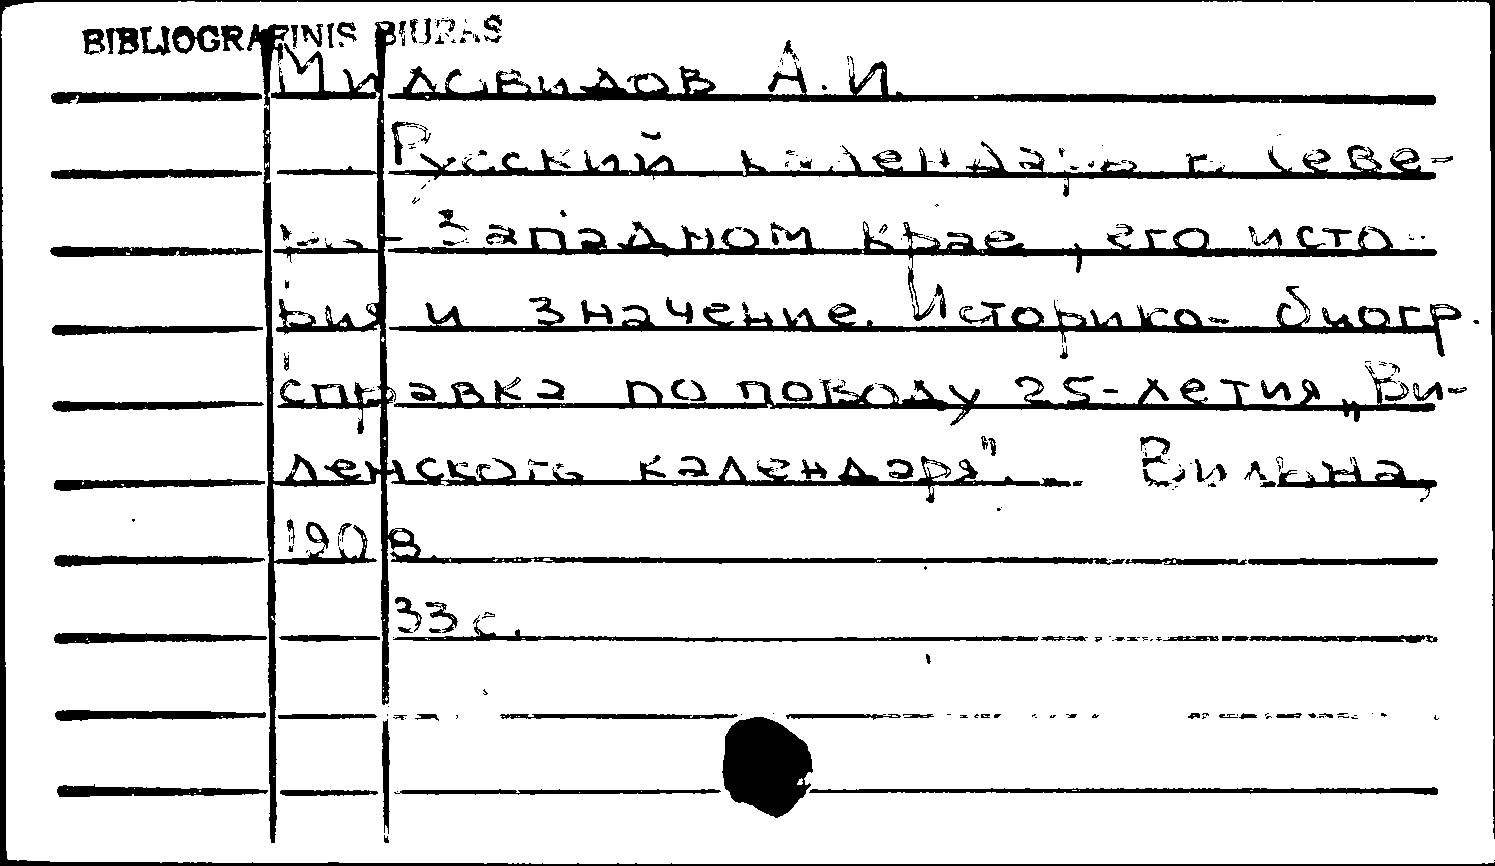 BIBLIOGRAFINIS BIURAS
Миловидов А.И.
Русский календарь в Севе-
ро-Западном крае, его исто-
рия и значение. Историко-биогр.
справка по поводу 25-летия „Ви-
ленского календаря". Вильна,
1908.
33 с.